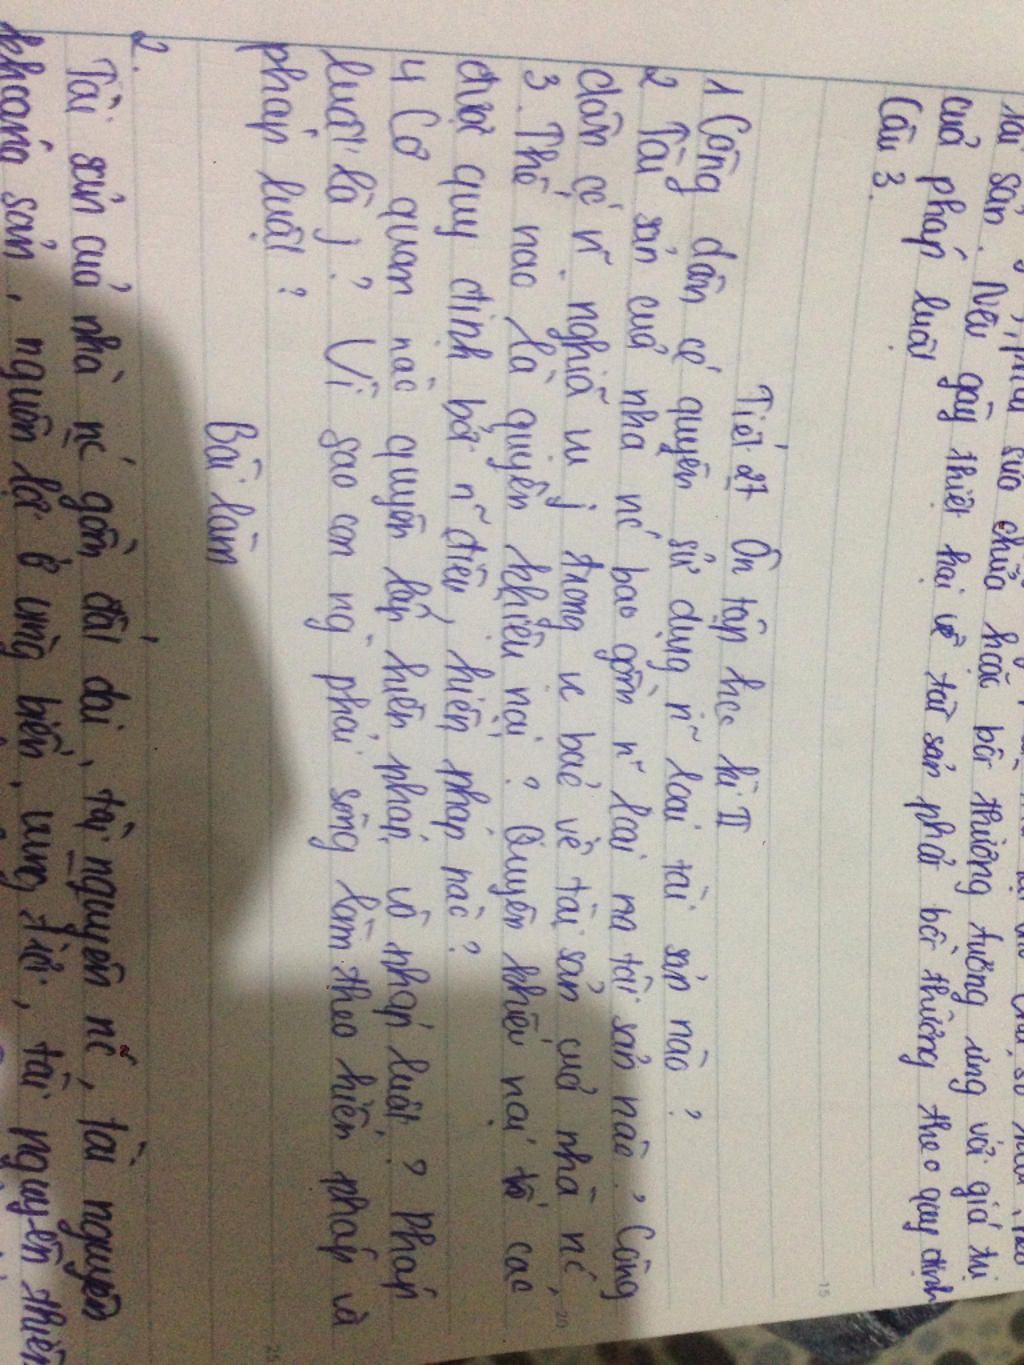 tài sản. Nếu gây thiệt hại về tài sản phải bồi thường theo quy định
của pháp luật
Câu 3.
Tiết 27 Ôn tập học kì II
1 Công dân có quyền sử dụng n~ loại tài sản nào?
2 Tài sản của nha nc bao gồm n~ loai na tài sản nào? Công
dân có n~ nghĩa vụ j trong vc baỏ vệ tài sản cuả nhà nc.
3. Thế nào là quyền khiếu nại? Quyền khiếu nại tố cao
đươc quy định bởi n~ điêu, hiến pháp nào?
4 Cơ quan nào quyền lập hiến pháp, và pháp luật? Pháp
luật là j? Vì sao con ng phải sống làm theo hiến pháp và
pháp luật?
Bài làm
2.
Tài sản cuả nhà nc gồm đất đai, tài nguyên nc, tài nguyên
khoáng sản, nguồn lợi ở vùng biển, vùng trời, tài nguyên thiên